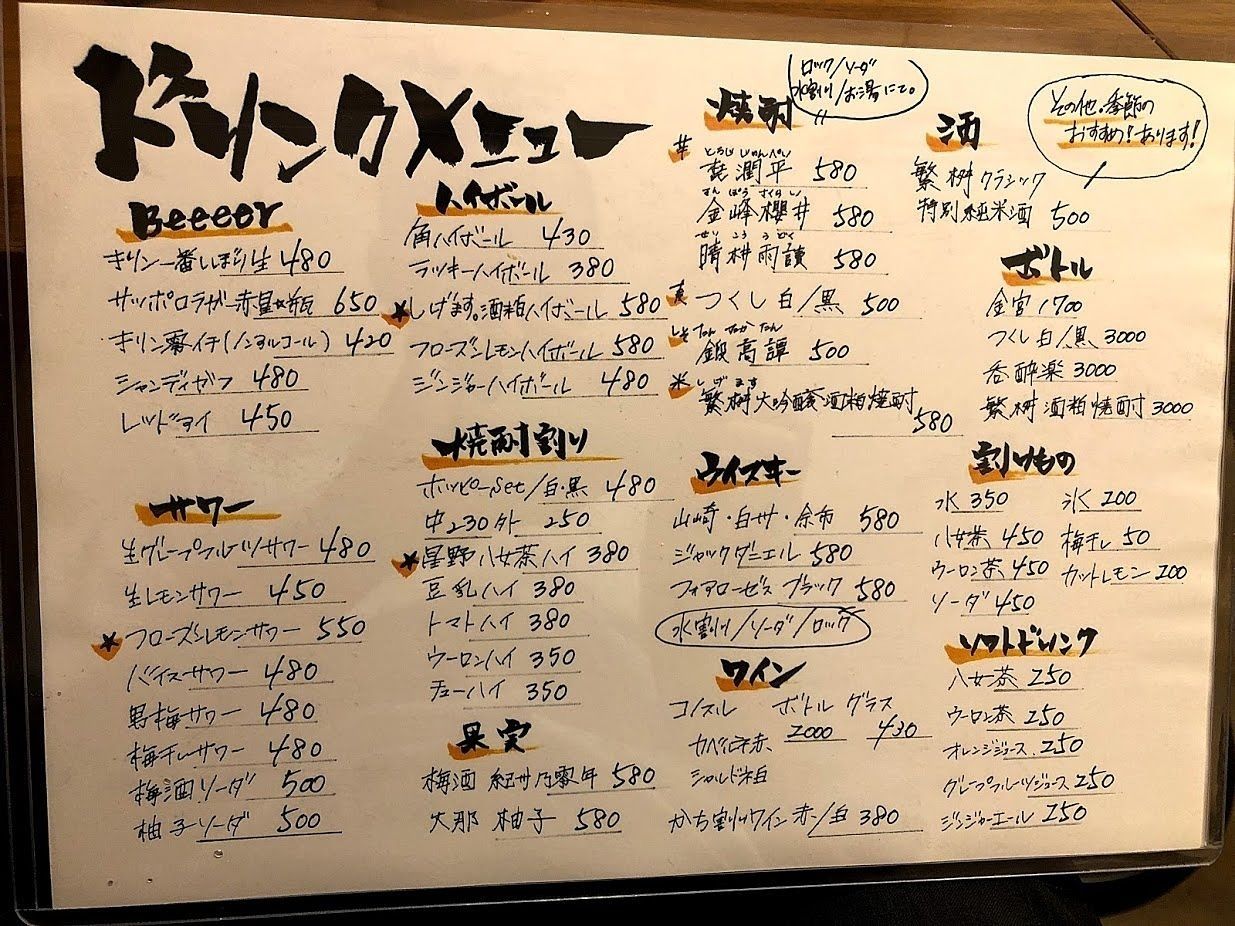 ドリンクメニュー
Beeeer
きりん一番しぼり生 480
サッポロラガー赤星★瓶 650
キリン零イチ(ノンアルコール) 420
シャンディガフ 480
レッドアイ 450
サワー
生グレープフルーツサワー 480
生レモンサワー 450
★フローズンレモンサワー 550
バイスサワー 480
男梅サワー 480
梅干しサワー 480
梅酒ソーダ 500
柚子ソーダ 500
ハイボール
角ハイボール 430
ラッキーハイボール 380
★しげます。酒粕ハイボール 580
フローズンレモンハイボール 580
ジンジャーハイボール 480
焼酎割り
ホッピーset/白・黒 480
中230 外 250
★星野八女茶ハイ 380
豆乳ハイ 380
トマトハイ 380
ウーロンハイ 350
チューハイ 350
果実
梅酒 紀州乃零年 580
大那 柚子 580
焼酎
ロック/ソーダ
水割り/お湯にて。
芋
とろしじゅんぺい
㐂潤平 580
きんぽうさくらい
金峰櫻井 580
せいこううどく
晴耕雨讀 580
麦 つくし 白/黒 500
しそ たんたかたん
鍛高譚 500
米 しげます
繁桝大吟醸酒粕焼酎
580
ウイスキー
山崎・白州・余市 580
ジャックダニエル 580
フォアローゼス ブラック 580
水割り/ソーダ/ロック
ワイン
コノスル ボトル グラス
2000 430
カベルネ赤
シャルドネ白
かち割りワイン 赤/白 380
酒
その他。季節の
おすすめ!あります!
繁桝クラシック
特別純米酒 500
ボトル
金宮 1700
つくし 白/黒 3000
呑酔楽 3000
繁桝 酒粕焼酎 3000
割りもの
水 350 氷 200
八女茶 450 梅干し 50
ウーロン茶 450 カットレモン 200
ソーダ 450
ソフトドリンク
八女茶 250
ウーロン茶 250
オレンジジュース 250
グレープフルーツジュース 250
ジンジャーエール 250